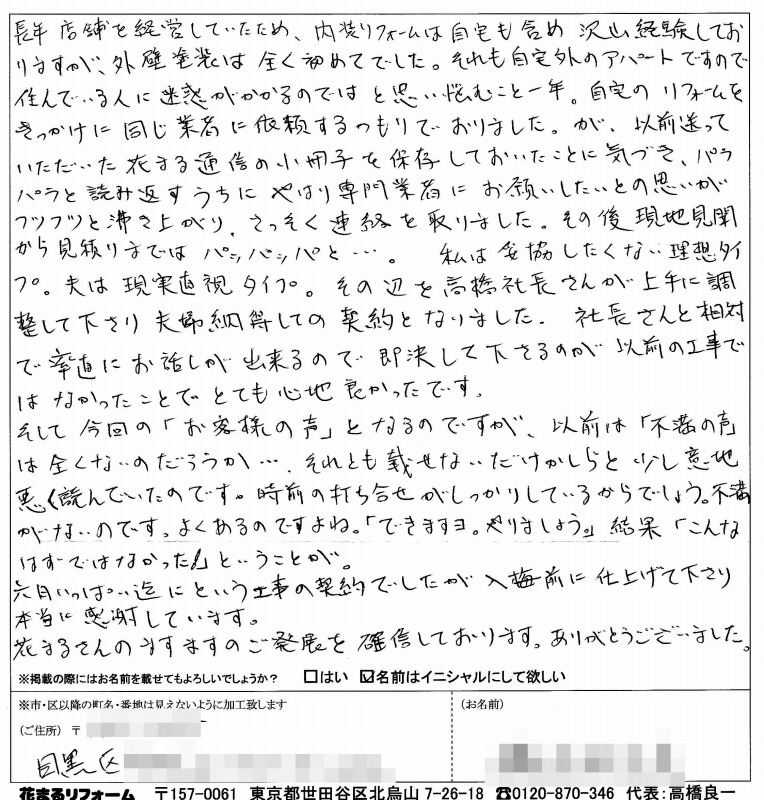 長年店舗を経営していたため、内装リフォームは自宅も含め沢山経験してお
りますが、外壁塗装は全く初めてでした。それも自宅外のアパートですので
住んでいる人に迷惑がかかるのではと思い悩むこと一年。自宅のリフォームを
きっかけに同じ業者に依頼するつもりでおりました。が、以前送って
いただいた花まる通信の小冊子を保存しておいたことに気づき、パラ
パラと読み返すうちにやはり専門業者にお願いしたいとの思いが
フツフツと沸き上がり、さっそく連絡を取りました。その後現地見聞
から見積りまではパッパッパと…。私は妥協したくない理想タイ
プ。夫は現実直視タイプ。その辺を高橋社長さんが上手に調
整して下さり夫婦納得しての契約となりました。社長さんと相対
で率直にお話しが出来るので即決して下さるのが以前の工事で
はなかったことでとても心地良かったです。
そして今回の「お客様の声」となるのですが、以前は「不満の声
は全くないのだろうか…、それとも載せないだけかしらと少し意地
悪く読んでいたのです。時前の打ち合せがしっかりしているからでしょう。不満
がないのです。よくあるのですよね。「できますヨ。やりましょう。」結果「こんな
はずではなかった」ということが。
六月いっぱい迄にという工事の契約でしたが入梅前に仕上げて下さり
本当に感謝しています。
花まるさんのますますのご発展を確信しております。ありがとうございました。
※掲載の際にはお名前を載せてもよろしいでしょうか? □はい ☑名前はイニシャルにして欲しい
※市・区以降の町名・番地は見えないように加工致します
(ご住所) 〒
目黒区
(お名前)
花まるリフォーム 〒157-0061 東京都世田谷区北烏山 7-26-18 ☎0120-870-346 代表:高橋良一